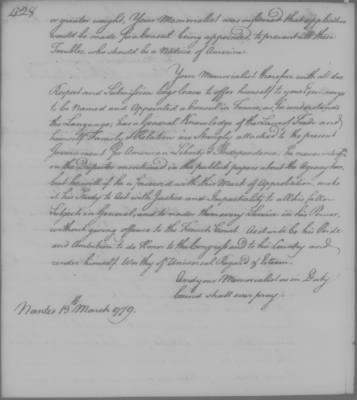 428
or greater weight. Your Memorialist was informed that application
would be made for a Consul being appointed to prevent all these
Troubles, who should be a Native of America
Your Memorialist therefore with all due
Respect and Submission begs leave to offer himself to your
to be Named and Appointed a Consul in France, as he understands
the Language, has a General Knowledge of the Laws of Trade and
himself Family & Relations are strongly attached to the present
Government for American Liberty & Independence. he never
in the Disputes mentioned in the publick papers about the Agency
but he will if he is Favoured with this Mark of Approbation make
it his Study to Act with Justice and Impartiality to all his fellow
Subjects in General, and to render them every Service in his Power,
without giving offence to the French Court. As it will be his Pride
and Ambition to do Honor to the Congress and to his Country and
render himself Worthy of Universal Regard & Esteem.
And your Memorialist as in Duty
bound shall ever pray.
Nantes 13th March 1779.